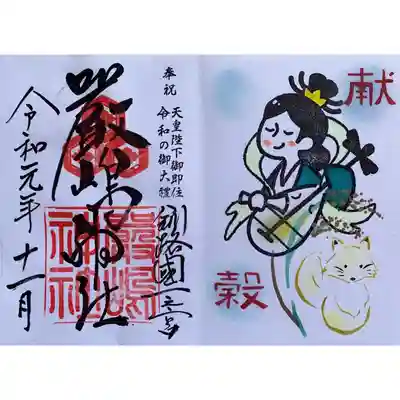 奉祝
天皇陛下御即位
令和の御大禮
釧路國一之宮
厳島神社
令和元年十一月
嚴嶋神社
献穀